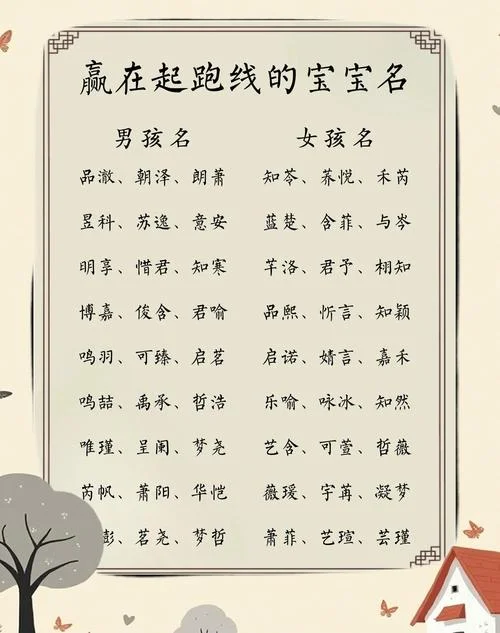 赢在起跑线的宝宝名
男孩名 女孩名
品澈、朝泽、朗萧 知苓、荞悦、禾芮
昱科、苏逸、意安 蓝楚、含菲、与岑
明享、惜君、知寒 芊洛、君予、栩知
博嘉、俊含、君喻 品熙、忻言、知颖
鸣羽、可臻、启茗 启诺、婧言、嘉禾
鸣喆、禹承、哲浩 乐喻、咏冰、知然
唯瑾、呈阑、梦尧 艺含、可萱、哲薇
芮帆、萧阳、华恺 薇瑷、宇苒、凝梦
彭、茗尧、梦哲 萧菲、艺瑄、芸瑾